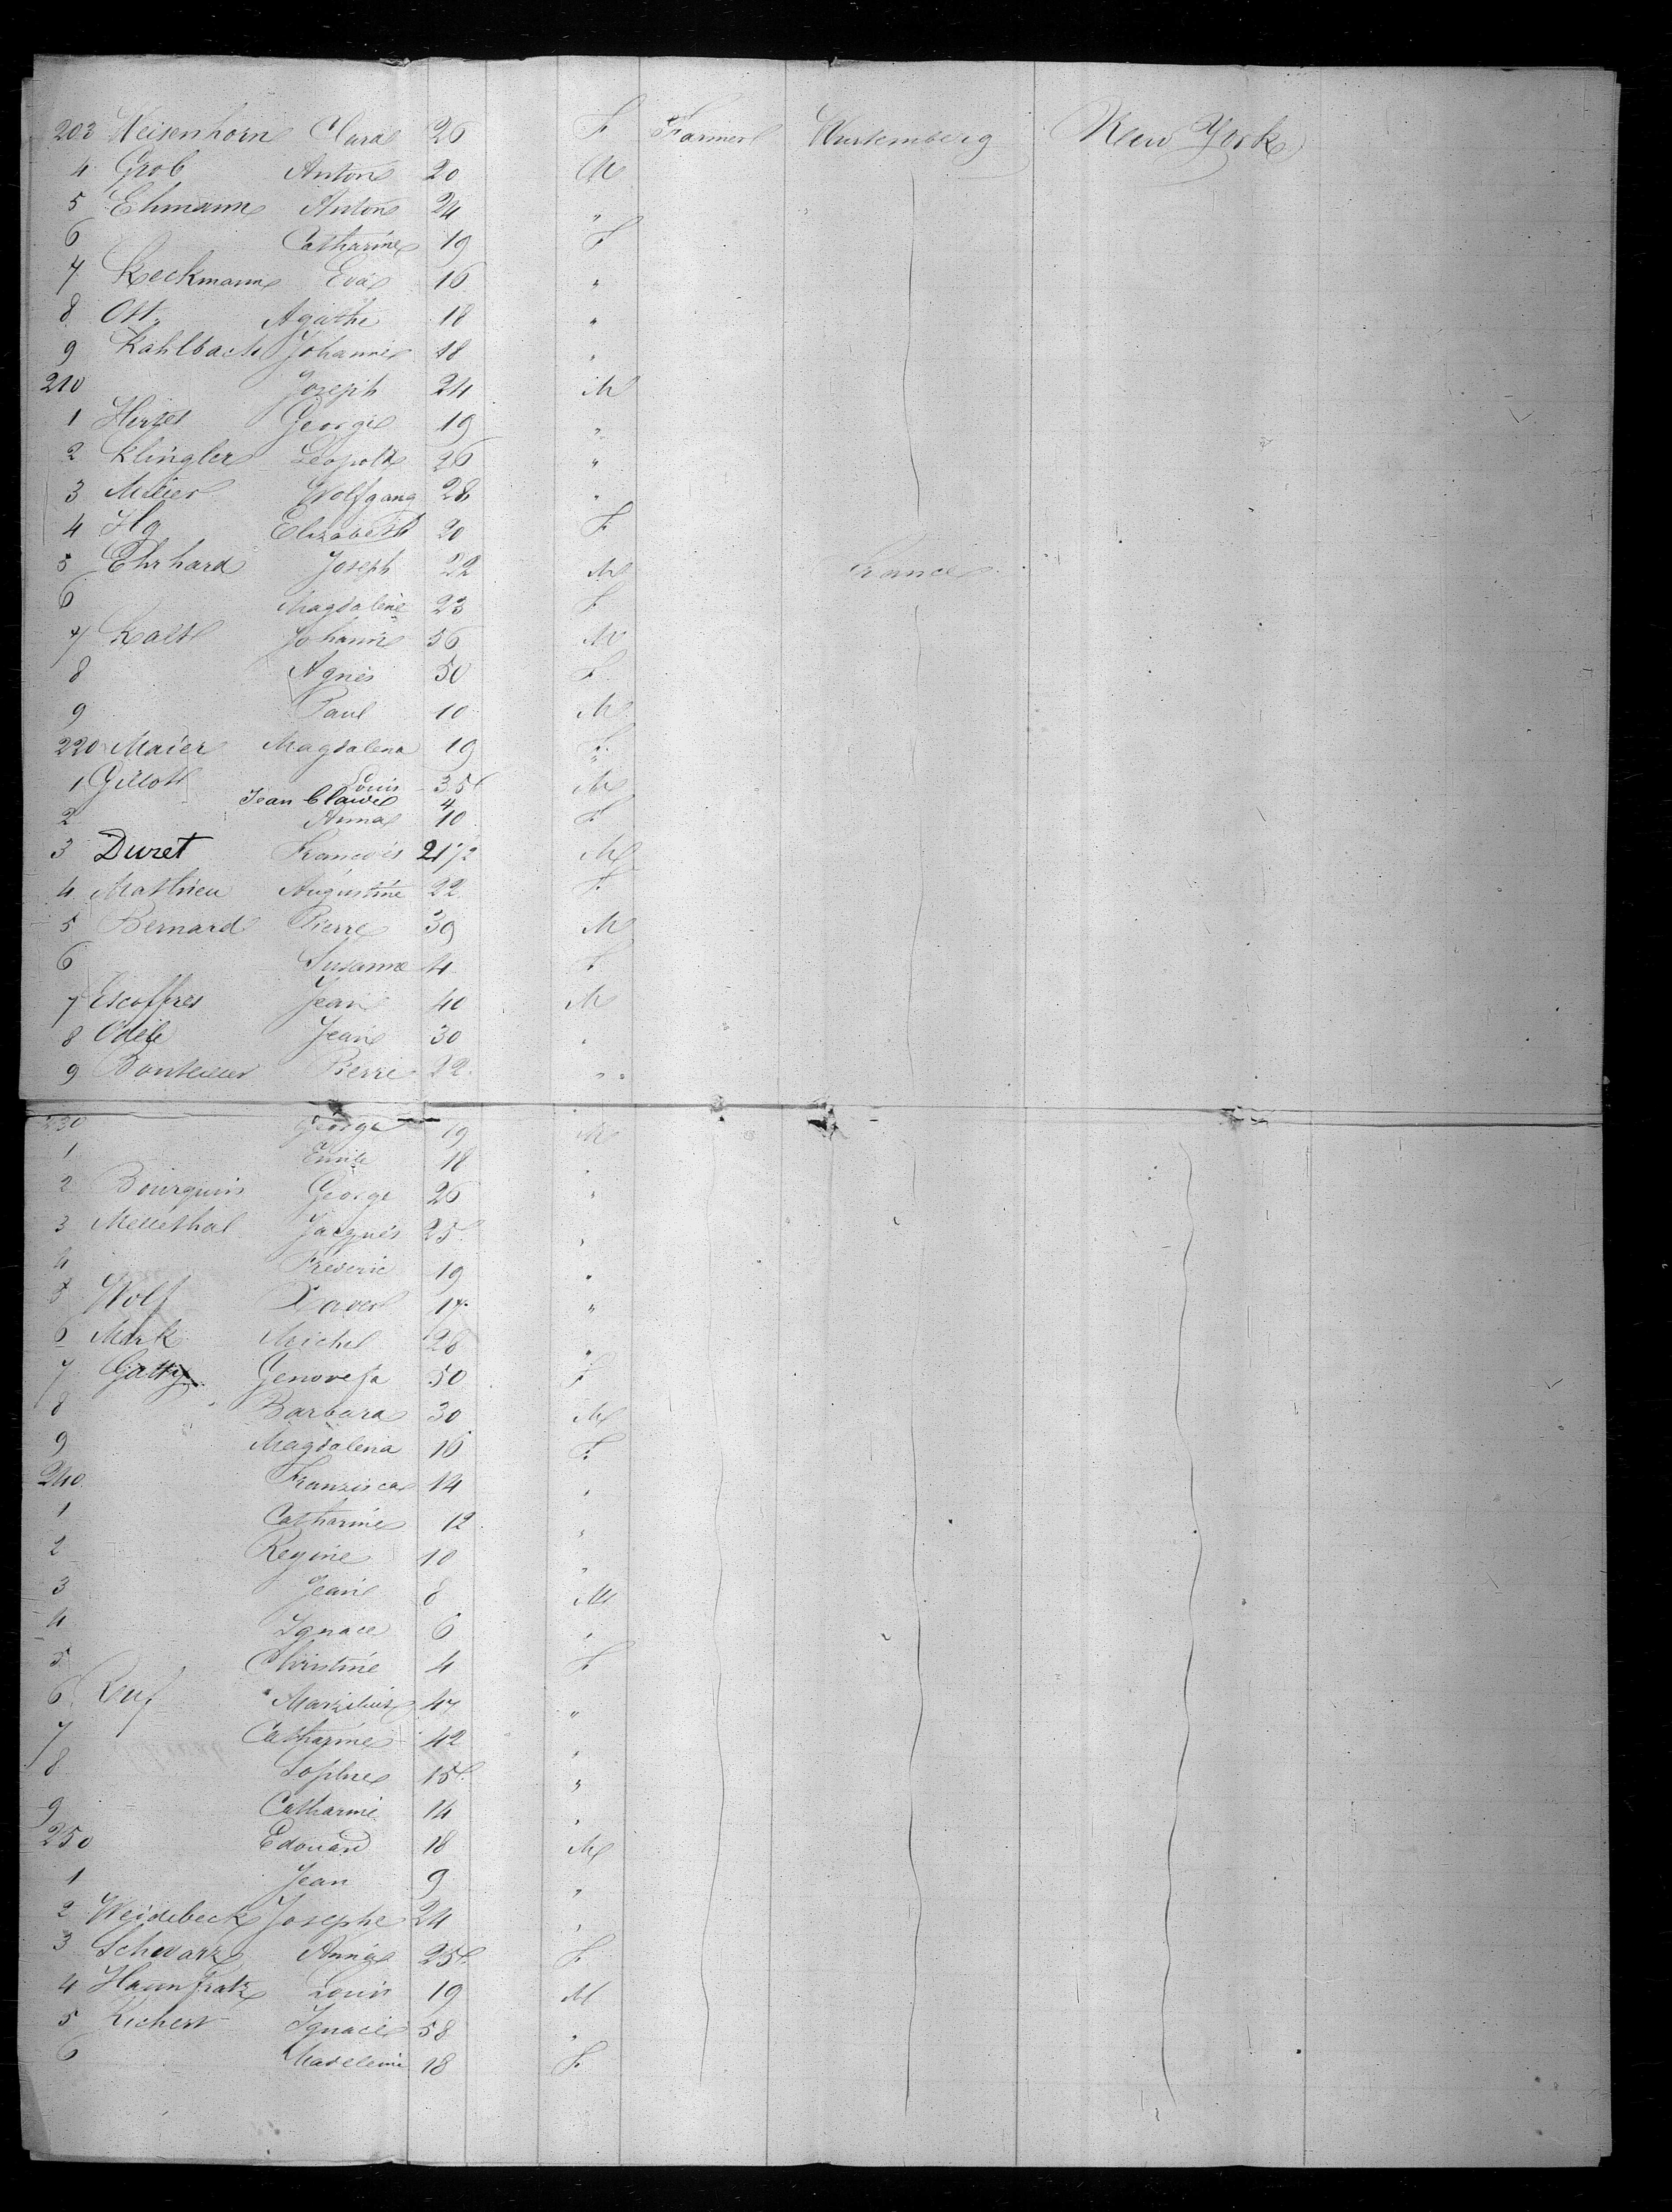 203 Weisenhorn Clara 26 F Farmer Wurtemberg New York
4 Grob Anton 20 M
5 Ehmann Anton 24 "
6 Catharine 19 F
7 Keckmann Eva 16 "
8 Ott Agathe 18 "
9 Kahlbach Johanne 18 "
210 Joseph 24 M
1 George 19 "
2 Klingler Leopold 26 "
3 Meier Wolfgang 28 "
4 Ilg Elizabeth 20 F
5 Ehrhard Joseph 22 M France
6 Magdalene 23 F
7 Kalt Johann 56 M
8 Agnes 50 F
9 Paul 10 M
220 Maier Magdalena 19 F
1 Gillot Louis 35 M
Jean Claude 4
2 Anna 10 F
3 Duret Francois 21 1/2 M
4 Mathieu Augustine 22 F
5 Bernard Pierre 39 M
6 Susanne 4 F
7 Escoffres Jean 40 M
8 Odile Jean 30 "
9 Pierre 22 "
230 George 19 M
1 Emile 18 "
2 Bourquin George 26 "
3 Jacques 25 "
4 Frederic 19 "
5 Wolf Xaver 17 "
6 Mark Michel 28 "
7 Gatty Genovefa 50 F
8 Barbara 30 M
9 Magdalena 16 F
240 Franzisca 14 "
1 Catharine 12 "
2 Regine 10 "
3 Jean 8 M
4 Ignace 6 "
5 Christine 4 F
6 Ruf 47 "
7 Catharine 42 "
8 Sophie 15 "
9 Catharine 14 "
250 Edouard 18 M
1 Jean 9 "
2 Weidebeck Josephe 24 "
3 Schwarz Anna 25 F
4 Haunfratz Louis 19 M
5 Richert Ignace 58 "
6 Madeleine 18 F